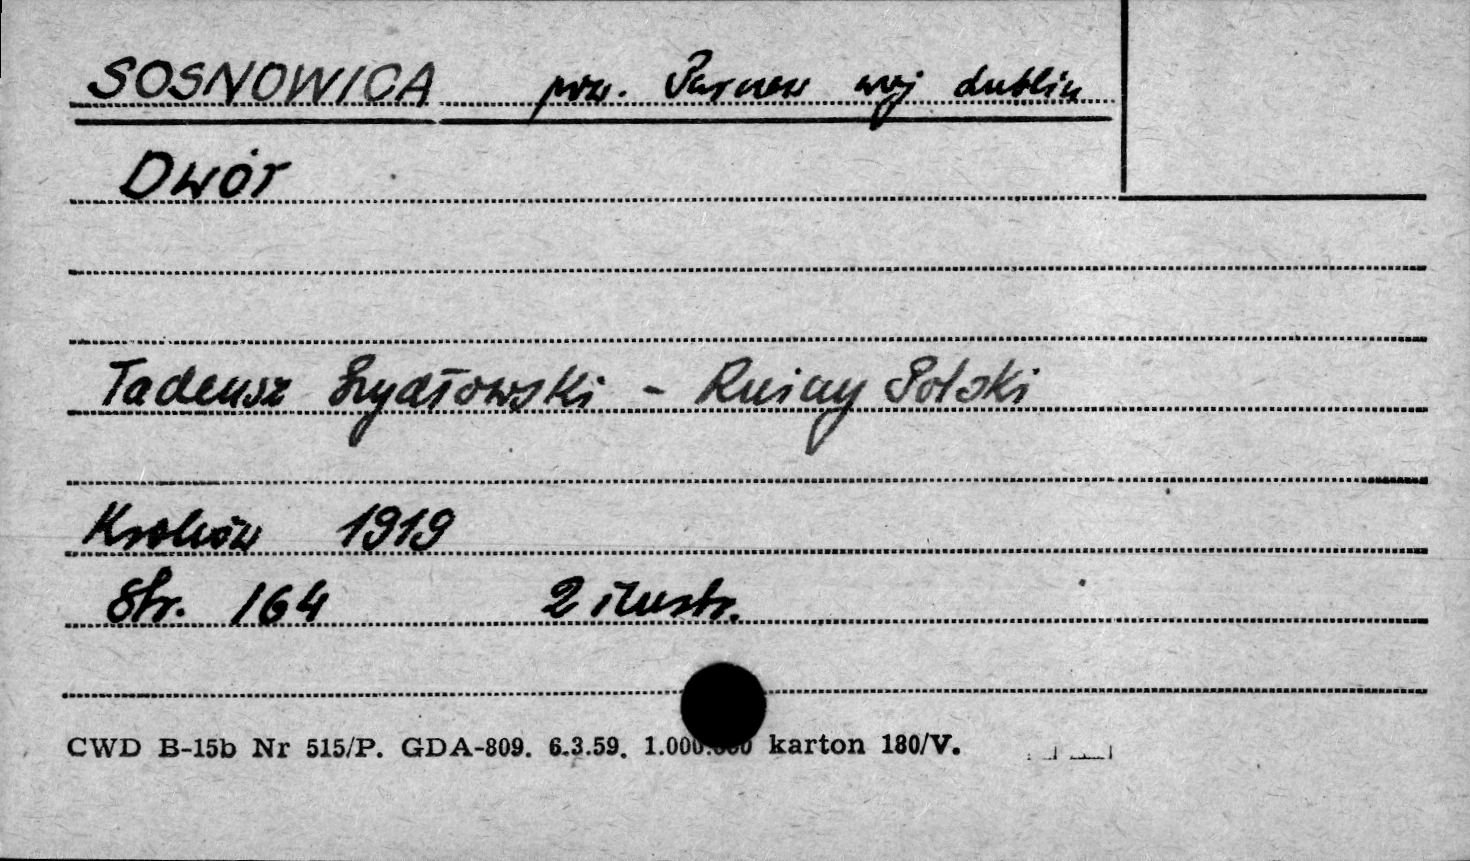 SOSNOWICA pow. Parczew woj Lublin
Dwór
Tadeusz Szydłowski - Ruiny Polski
Kraków 1919
Str. 164 2 ilustr.
CWD B-15b Nr 515/P. GDA-809. 6.3.59. 1.000.000 karton 180/V.